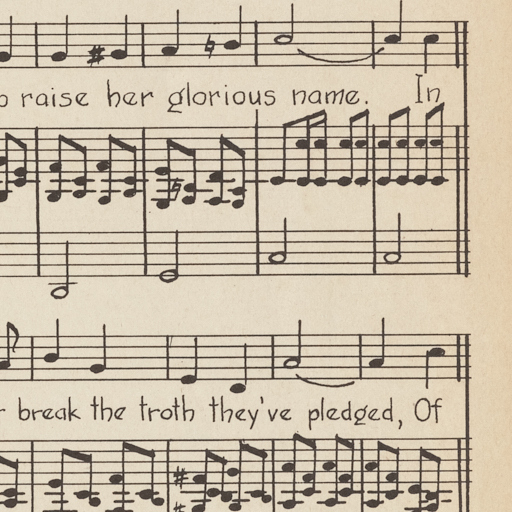 raise her glorious name. In
break the troth they've pledged, Of